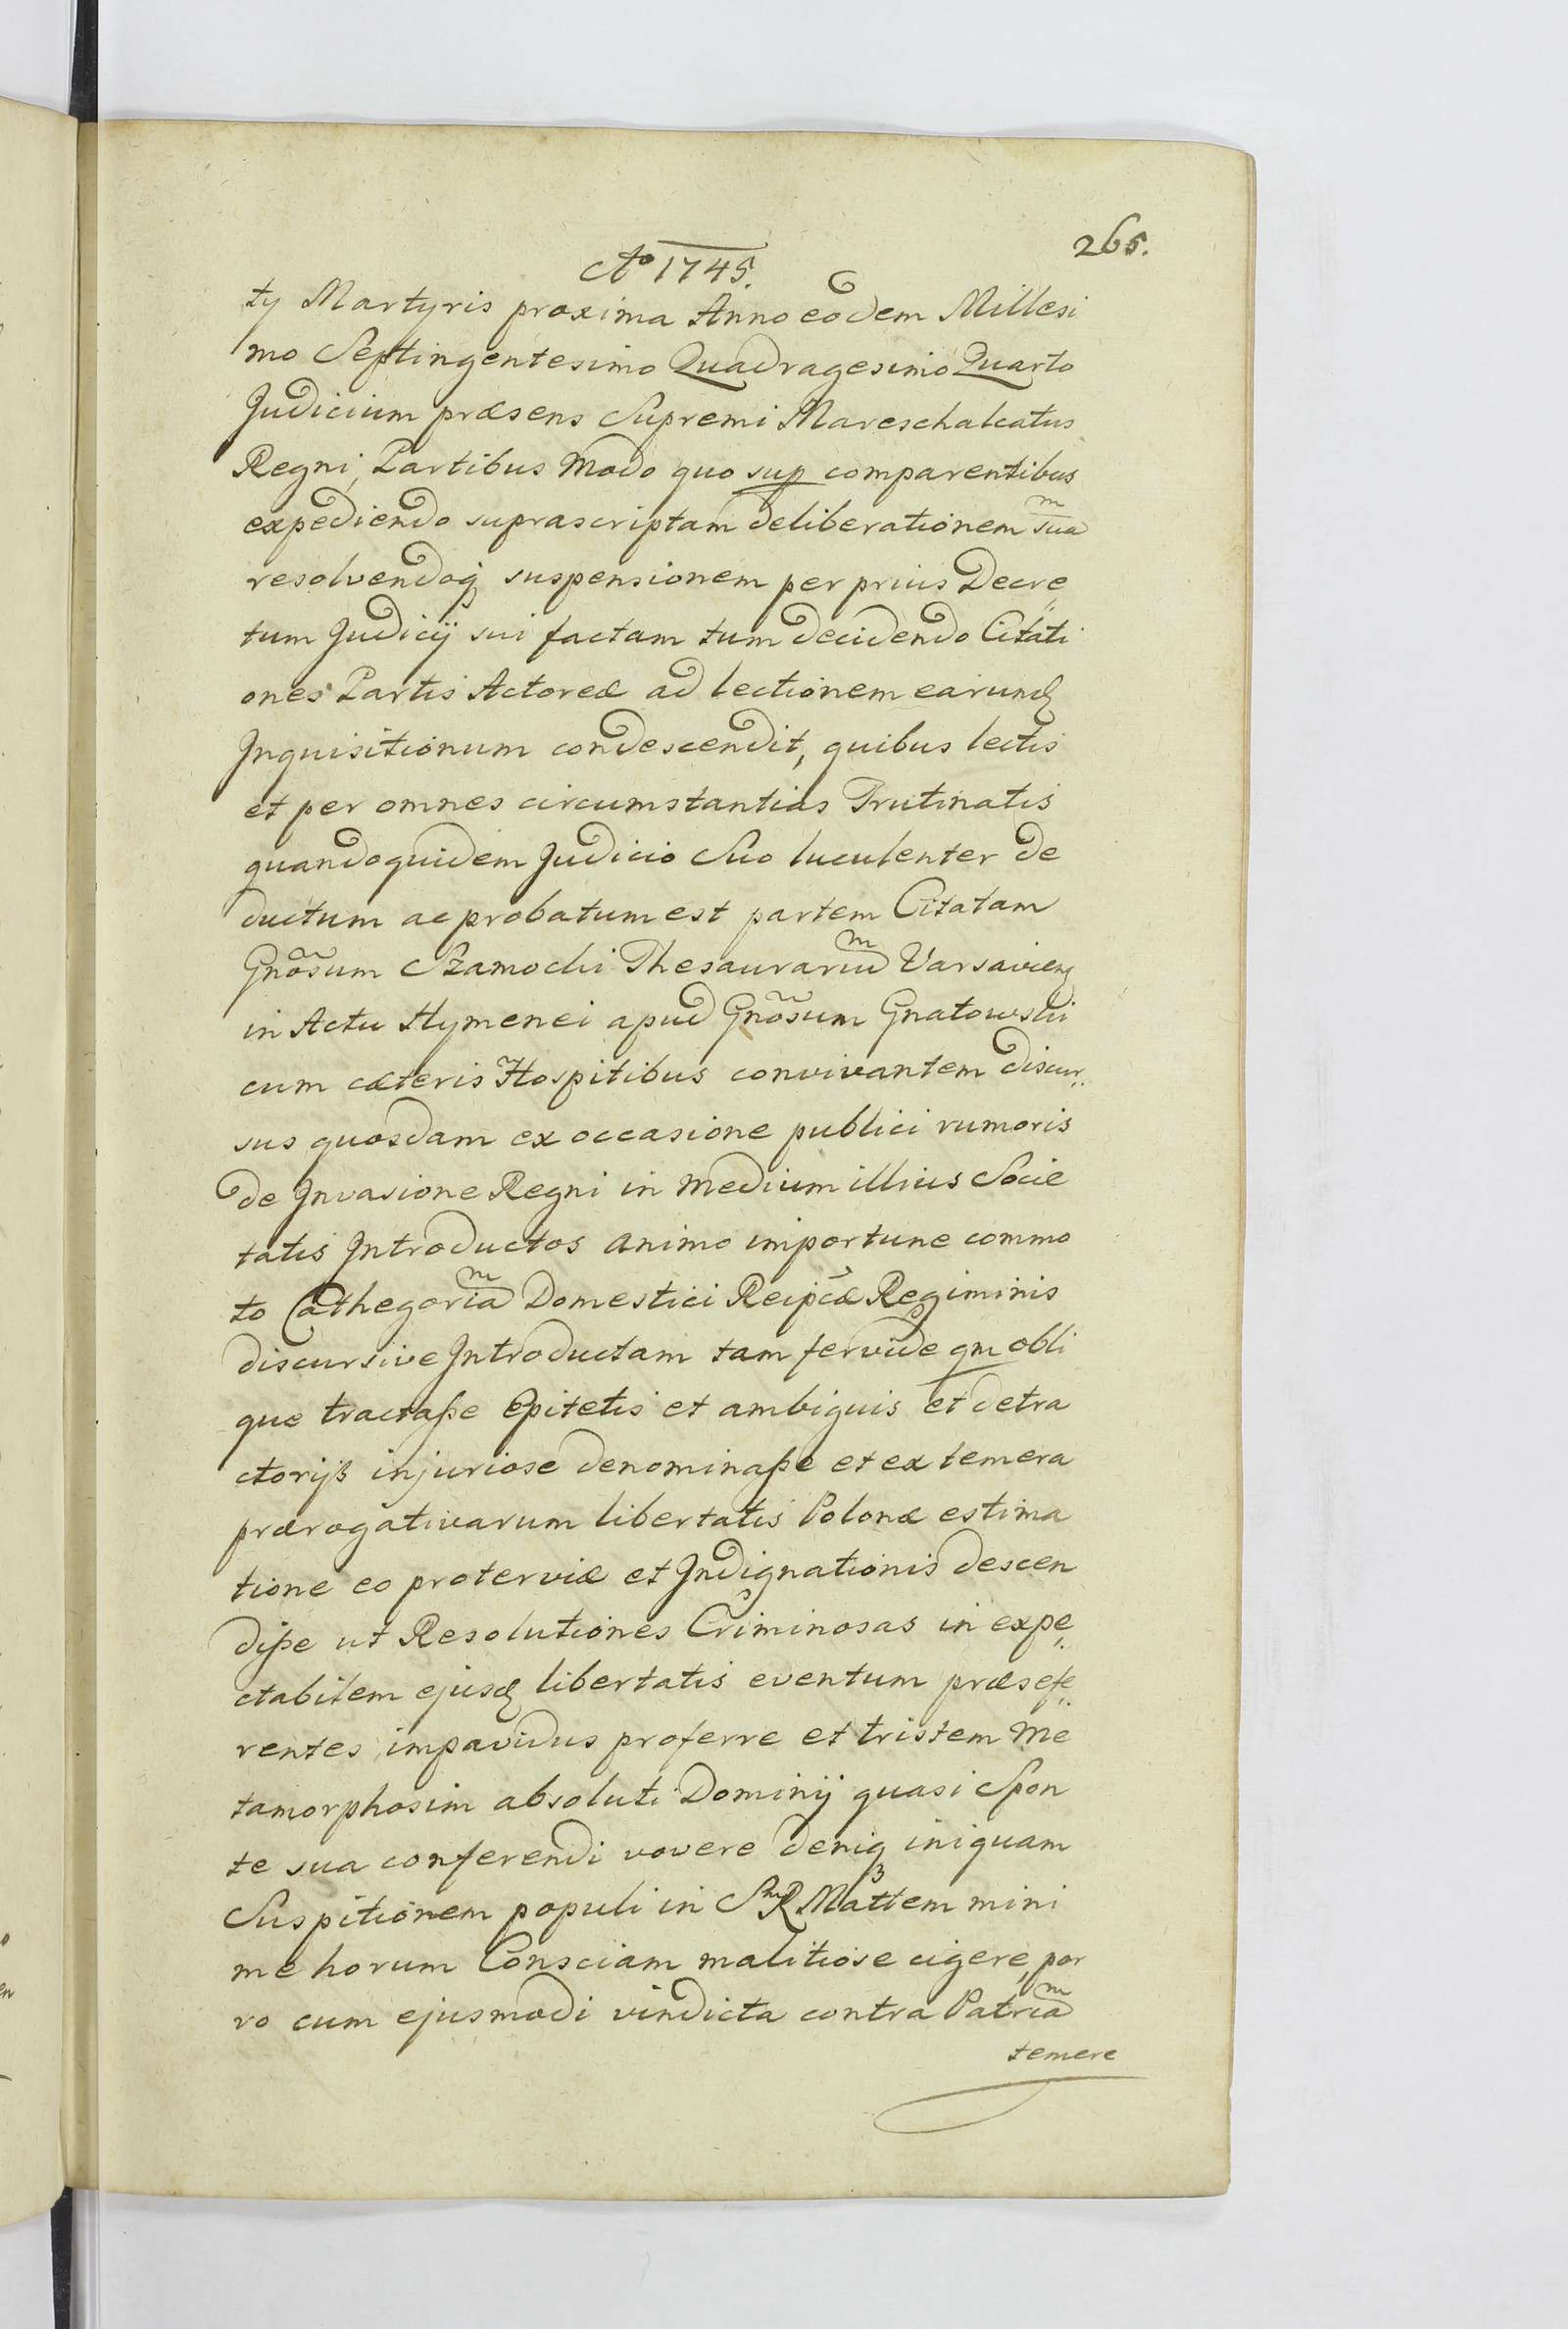 265.
Ao 1745.
ty Martyris proxima Anno eodem Millesi
mo Septingentesimo Quadragesimo Quarto
Judicium præsens Supremi Mareschalcatus
Regni, Partibus modo quo sup comparentibus
expediendo suprascriptam deliberationem suam
resolvendoq suspensionem per prius Decre„
tum Judicij sui factam tum decidendo Citati
ones Partis Actoreæ ad lectionem earund
Inquisitionum condescendit, quibus lectis
et per omnes circumstantias Trutinatis
quandoquidem Judicio Suo luculenter de
ductum ac probatum est partem Citatam
Gnõsum Szamocki Thesaurarium Varsavien
in Actu Hymenei apud Gnõsum Gnatowski
cum cæteris Hospitibus convivantem discur„
sus quosdam ex occasione publici rumoris
de Invasione Regni in medium illius Socie
tatis Introductos animo importune commo
to Cathegoriam Domestici Reipcæ Regiminis
discursive Introductam tam fervide qm obli
que tractaße Epitetis et ambiguis et detra
ctorijs injuriose denominaße et ex temera
prærogativarum libertatis Polonæ estima
tione eo proterviæ et Indignationis descen
diße ut Resolutiones Criminosas in expe„
ctabilem ejusd libertatis eventum præsefe„
rentes impavidus proferre et tristem Me
tamorphosim absoluti Dominij quasi Spon
te sua conferendi vovere deniq iniquam
Suspitionem populi in S R Mattem mini
me horum Consciam malitiose cigere, por
ro cum ejusmodi vindicta contra Patriam
temere